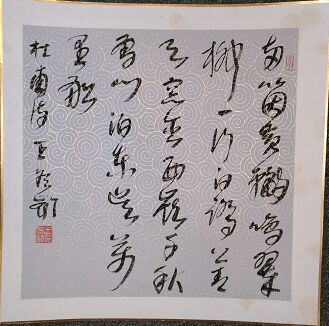 兩箇黃鸝鳴翠
柳一行白鷺上青
天窗含西嶺千秋
雪門泊東吳萬
里船
杜甫诗 王